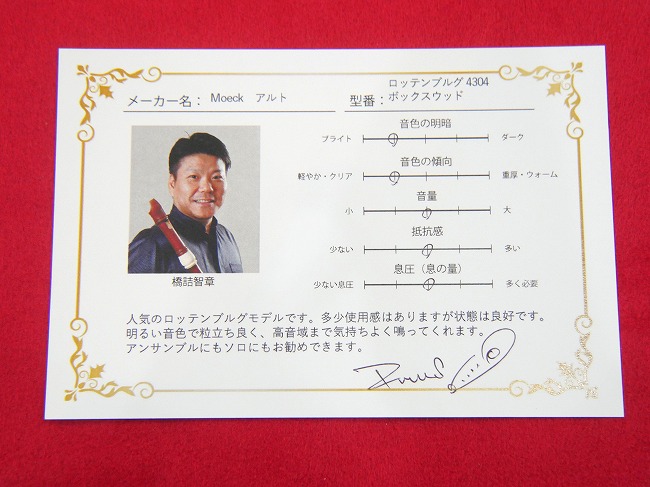 メーカー名： Moeck アルト
型番： ロッテンブルグ 4304
ボックスウッド
音色の明暗
ブライト ダーク
音色の傾向
軽やか・クリア 重厚・ウォーム
音量
小 大
抵抗感
少ない 多い
息圧（息の量）
少ない息圧 多く必要
橋詰智章
人気のロッテンブルグモデルです。多少使用感はありますが状態は良好です。
明るい音色で粒立ち良く、高音域まで気持ちよく鳴ってくれます。
アンサンブルにもソロにもお勧めできます。